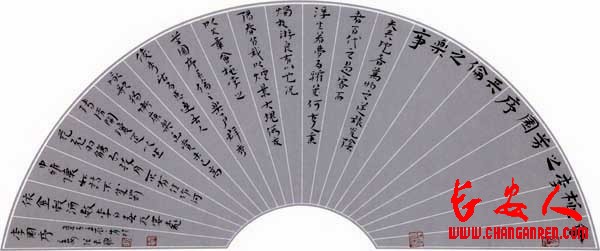 會桃李之芳園序天倫之樂事
夫天地者萬物之逆旅光陰
者百代之過客而
浮生若夢為歡幾何古人秉
燭夜游良有以也況
陽春召我以煙景大塊假我
以文章會桃李之
芳園序天倫之樂事群季
俊秀皆為惠連吾人
詠歌獨慚康樂幽賞未已高
談轉清開瓊筵以坐
花飛羽觴而醉月不有佳作何
伸雅懷如詩不成罰
依金谷酒數李白春夜宴桃
李園序
长安人
WWW.CHANGANREN.COM